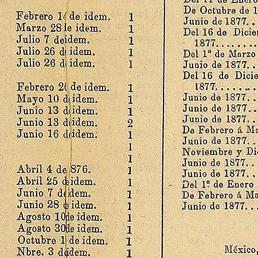 Febrero 14 de idem. 1
Marzo 28 de idem. 1
Julio 7 de idem. 1
Julio 26 de idem. 1
Julio 26 de idem. 1
Febrero 20 de idem. 1
Mayo 10 de idem. 1
Junio 13 de idem. 1
Junio 13 de idem. 2
Junio 16 de idem. 1
1
1
Abril 4 de 876. 1
Abril 25 de idem. 1
Junio 7 de idem. 1
Junio 28 de idem. 1
Agosto 10 de idem. 1
Agosto 30 de idem. 1
Octubre 1 de idem. 1
Nbre. 3 de idem. 1
De Octubre de 1
Junio de 1877..
Del 16 de Dicie
1877.....
Del 1° de Marzo
Junio de 1877..
Del 16 de Dicie
1877........
Junio de 1877..
Junio de 1877..
Junio de 1877..
De Febrero á M
Junio de 1877..
Noviembre y Di
Junio de 1877..
Junio de 1877..
Del 1° de Enero
De Febrero á Ma
Junio de 1877..
México,